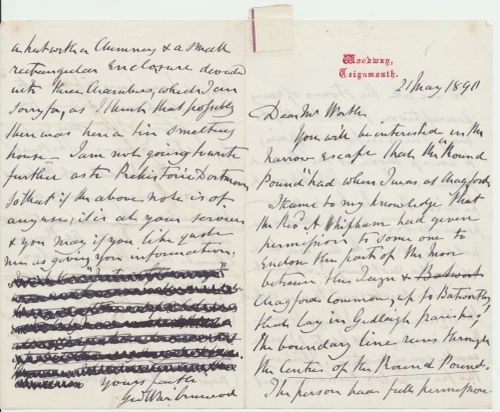 Woodway,
Teignmouth.
21 May 1890
Dear Mr Worth
You will be interested in the
narrow escape that the "Round
Pound" had when I was at Chagford
It came to my knowledge that
the Revd A Whipham had given
permission to some one to
enclose the part of the moor
between the Teign & Batworth
Chagford Common, up to Batworthy
that lay in Gidleigh parish;
the boundary line runs through
the centre of the Round Pound.
The person had full permission
a hut with a Chimney & a small
rectangular enclosure divided
into three Chambers, which I am
sorry for, as I think that possibly
there was here a tin smelting
house — I am not going to write
further as to Prehistoric Dartmoor
so that if the above note is of
any use, it is at your service
& you may if you like quote
me as giving you information.
Yours faith